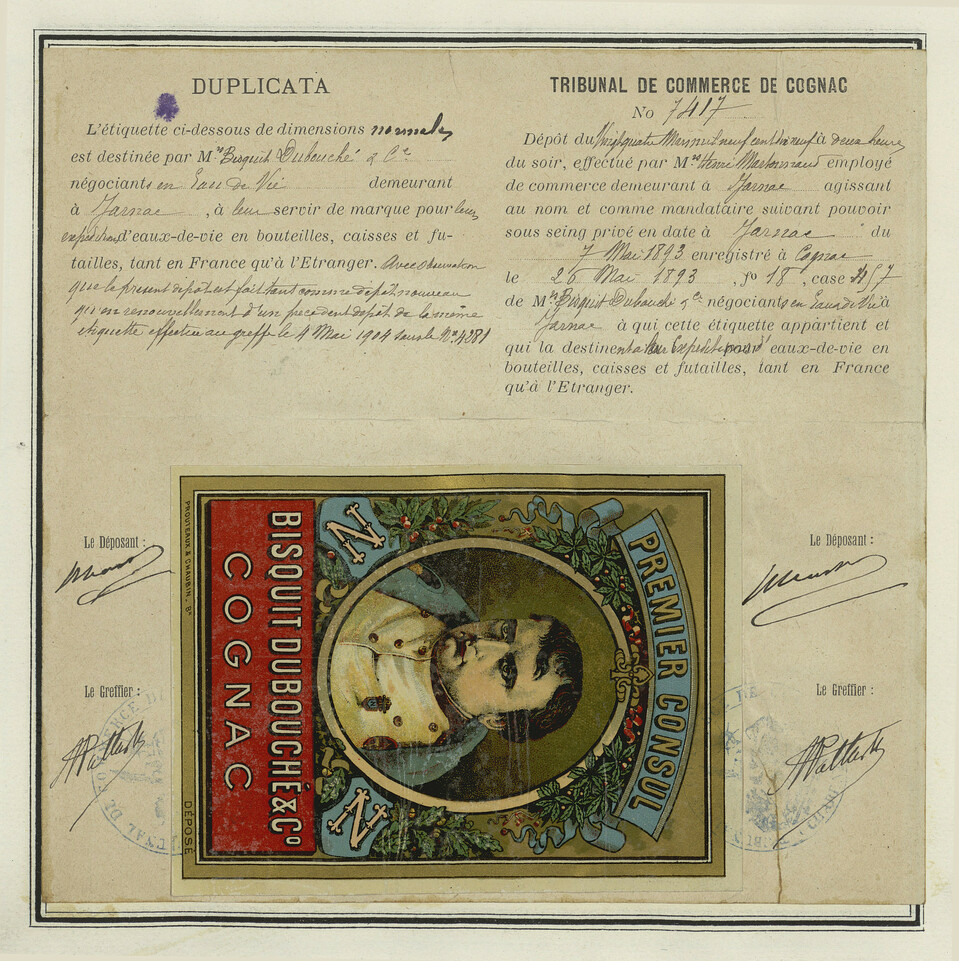 DUPLICATA
L'étiquette ci-dessous de dimensions normales
est destinée par Mrs Bisquit Dubouché & Cie
négociants en Eau de Vie demeurant
à Jarnac, à leur servir de marque pour leurs
expéditions d'eaux-de-vie en bouteilles, caisses et fu-
tailles, tant en France qu'à l'Etranger. Avec observation
que le présent dépôt est fait tant comme dépôt nouveau
qu'en renouvellement d'un précédent dépôt de la même
étiquette effectué au greffe le 4 Mai 1904 sous le No 4281
TRIBUNAL DE COMMERCE DE COGNAC
No 7417
Dépôt du Vingt quatre Mars mil neuf cent dix neuf à deux heures
du soir, effectué par Mr Henri employé
de commerce demeurant à Jarnac agissant
au nom et comme mandataire suivant pouvoir
sous seing privé en date à Jarnac du
7 Mai 1893 enregistré à Cognac
le 26 Mai 1893, fo 18, case
de Mrs Bisquit Dubouché & Cie négociants en Eaux de Vie à
Jarnac à qui cette étiquette appartient et
qui la destinent à leurs Expéditions d'eaux-de-vie en
bouteilles, caisses et futailles, tant en France
qu'à l'Etranger.
Le Déposant :
Le Greffier :
Le Déposant :
Le Greffier :
PREMIER CONSUL
N N
BISQUIT DUBOUCHÉ & Co
COGNAC
PROUTEAUX & CHAUBIN, Bx
DÉPOSÉ